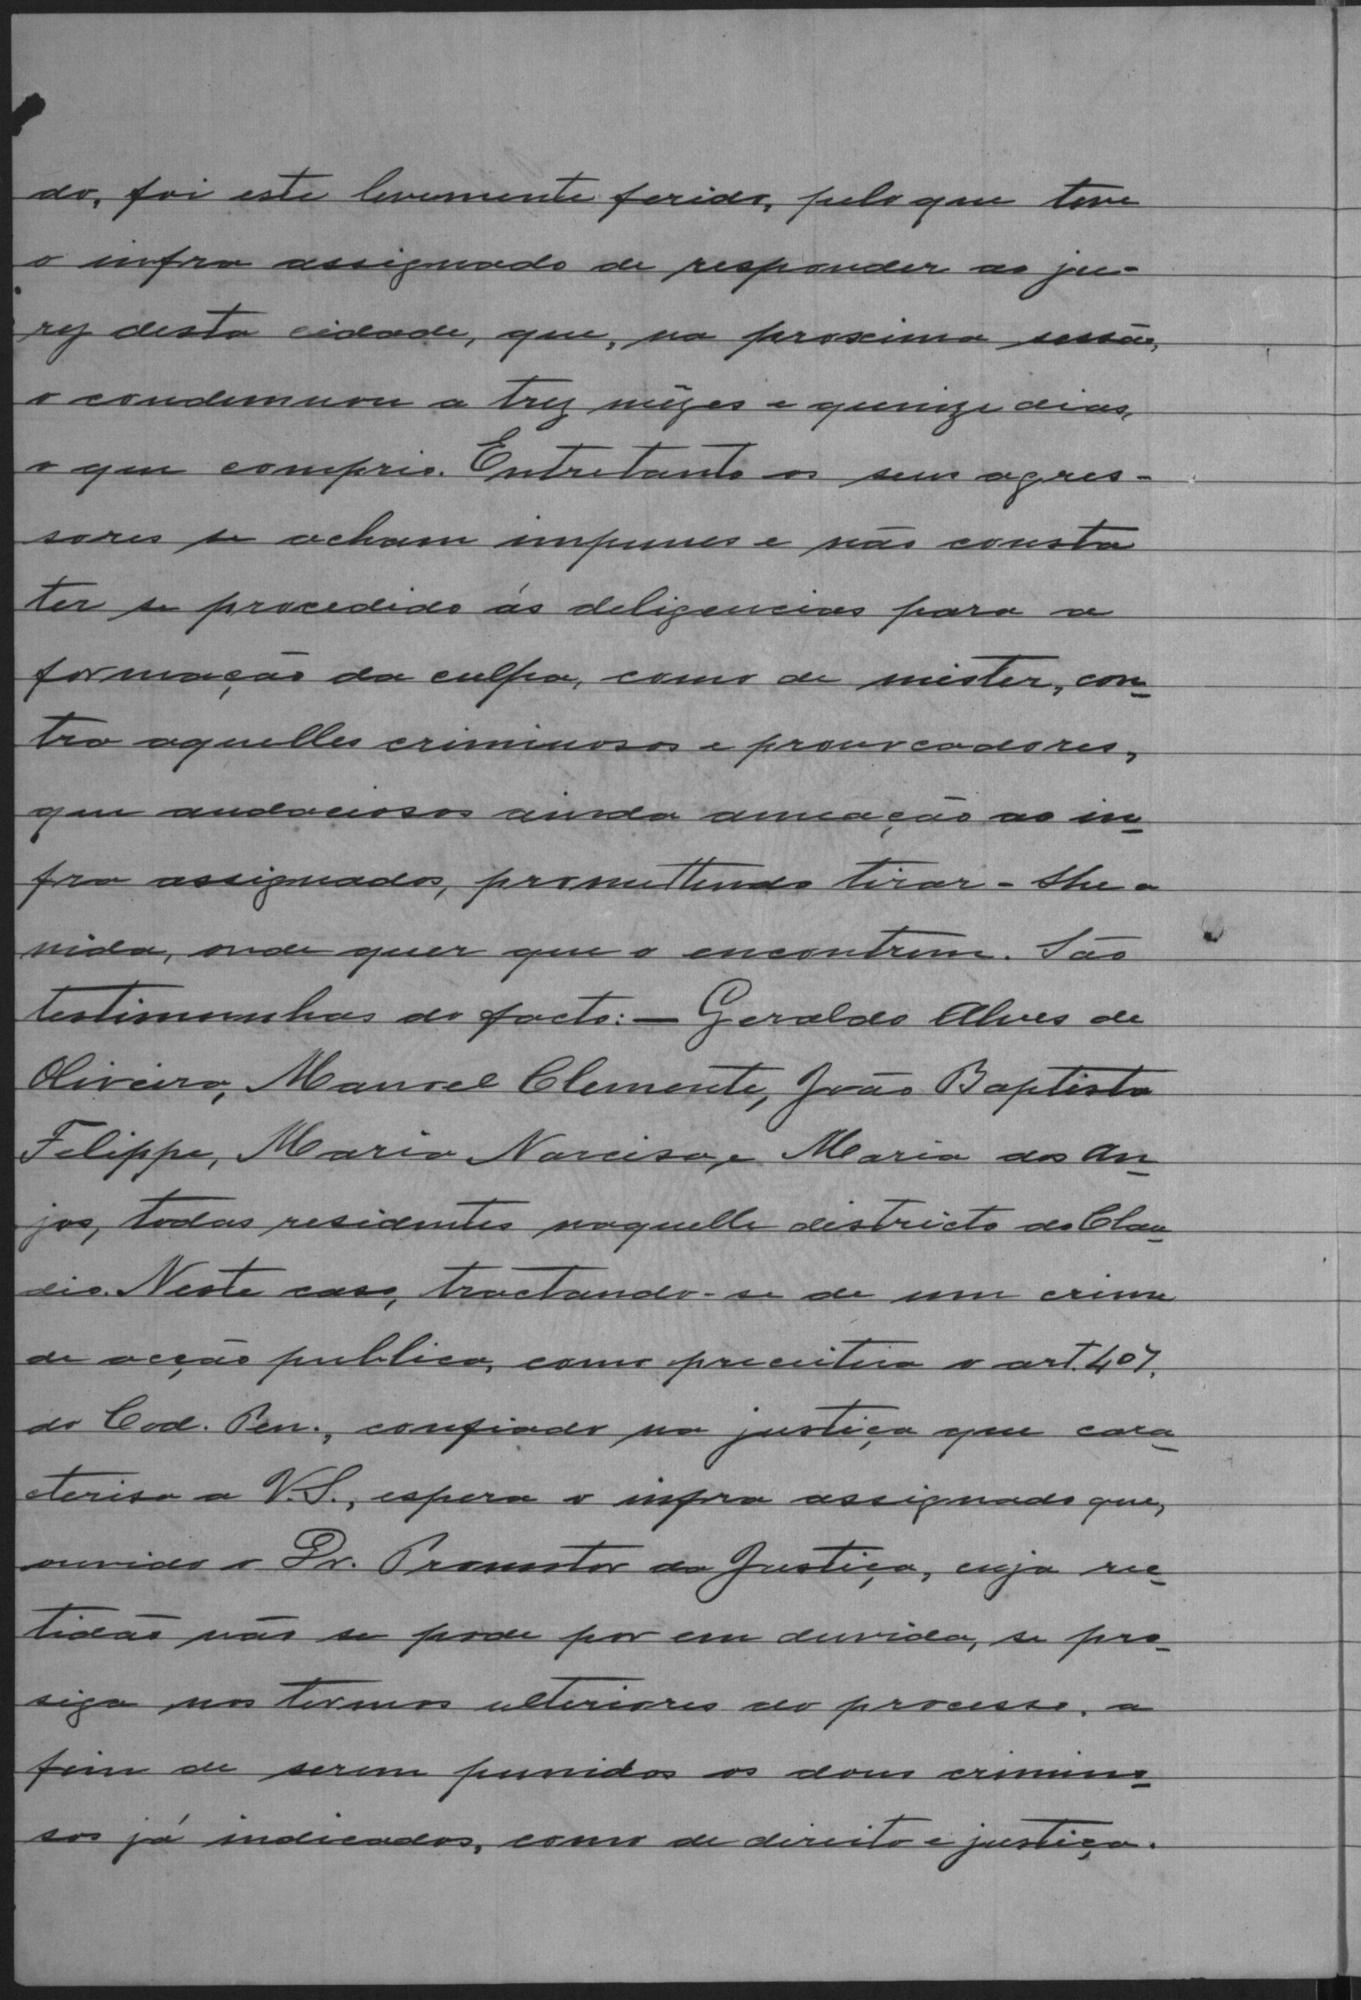 do, foi este levemente ferido, pelo que teve
o infra assignado de responder ao ju-
ry desta cidade, que, na proxima sessão,
o condemnou a trez mêzes e quinze dias,
o que comprio. Entretanto os seus agres-
sores se acham impunes e não consta
ter se procedido ás deligencias para a
formação da culpa, como de mister, con-
tra aquelles criminosos e provocadores,
que audaciosos ainda ameação ao in-
fra assignados, promettendo tirar-lhe a
vida, onde quer que o encontrem. São
testimunhas do facto: — Geraldo Alves de
Oliveira, Manoel Clemente, João Baptista
Felippe, Maria Narcisa, e Maria dos An-
jos, todas residentes naquelle districto do Clau-
dio. Neste caso, tractando-se de um crime
de acção publica, como preceitua o art. 407.
do Cod. Pen., confiado na justiça que cara-
cterisa a V.S., espera o infra assignado que,
ouvido o Dr. Promotor da Justiça, cuja rec-
tidão não se pode por em duvida, se pro-
siga nos termos ulteriores do processo, a
fim de serem punidos os dous crimino-
sos já indicados, como de direito e justiça.